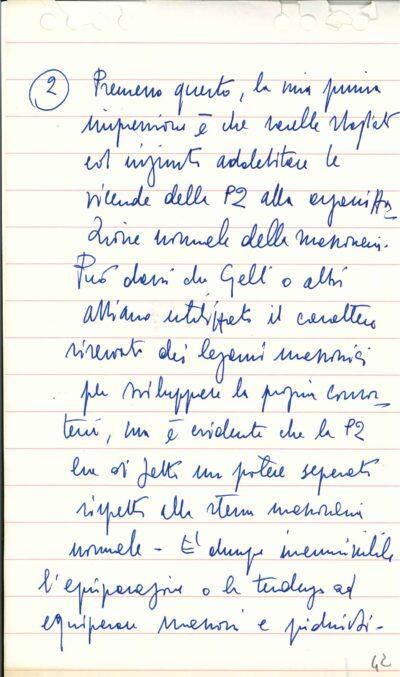 2 Premesso questo, la mia prima
impressione è che sarebbe sbagliato
ed ingiusto addebitare le
vicende della P2 alla organizza
zione normale della massoneria.
Può darsi che Gelli o altri
abbiano utilizzato il carattere
riservato dei legami massonici
per sviluppare la propria consor_
teria, ma è evidente che la P2
era di fatto un potere separato
rispetto alla stessa massoneria
normale - E' dunque inammissibile
l'equiparazione o la tendenza ad
equiparare massoni e piduisti-
42